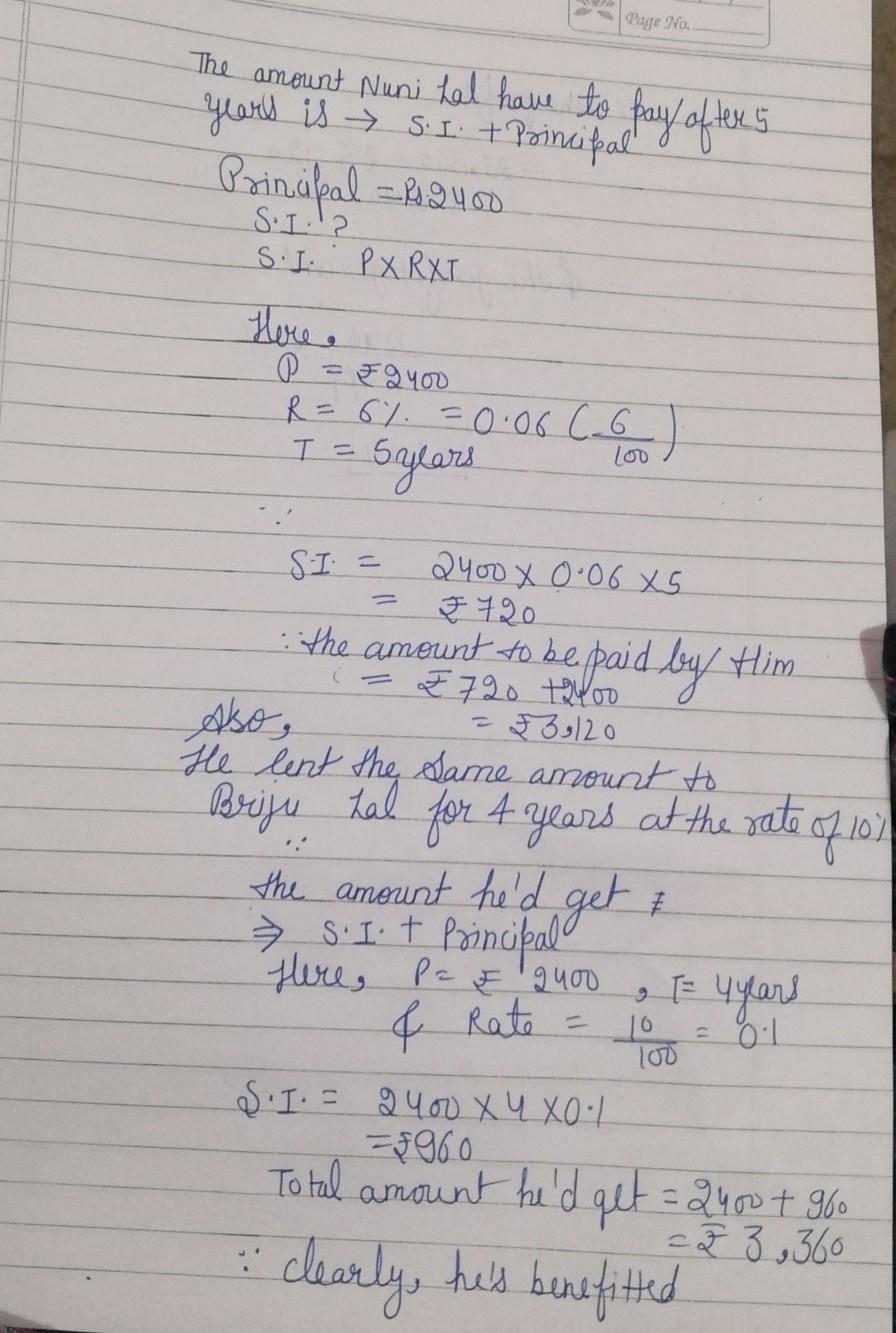 Page No.
The amount Nuni Lal have to pay after 5
years is → S.I. + Principal
Principal = Rs.2400
S.I. ?
S.I. P X R X T
Here,
P = ₹2400
R = 6% = 0.06 ( 6/100 )
T = 5 years
∵
S.I. = 2400 X 0.06 X 5
= ₹720
∵ the amount to be paid by Him
= ₹720 + 2400
= ₹3,120
Also,
He lent the same amount to
Briju Lal for 4 years at the rate of 10%
∵
the amount he'd get
⇒ S.I. + Principal
Here, P = ₹ 2400 , T = 4 years
& Rate = 10/100 = 0.1
S.I. = 2400 X 4 X 0.1
= ₹960
Total amount he'd get = 2400 + 960
= ₹ 3,360
∵ clearly, he's benefitted